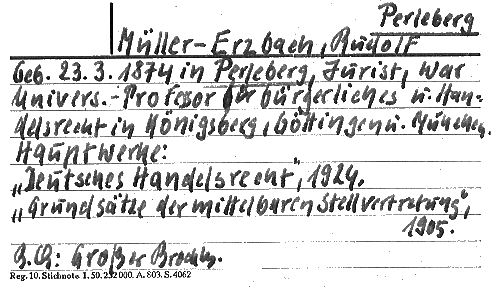 Perleberg
Müller-Erzbach, Rudolf
Geb. 23.3.1874 in Perleberg, Jurist, war
Univers.-Professor für bürgerliches u. Han-
delsrecht in Königsberg, Göttingen u. München.
Hauptwerke:
„Deutsches Handelsrecht", 1924.
„Grundsätze der mittelbaren Stellvertretung",
1905.
B.Qu: Großer Brockh.
Reg. 10. Stichnote 1. 50. 252000. A. 803. S. 4062